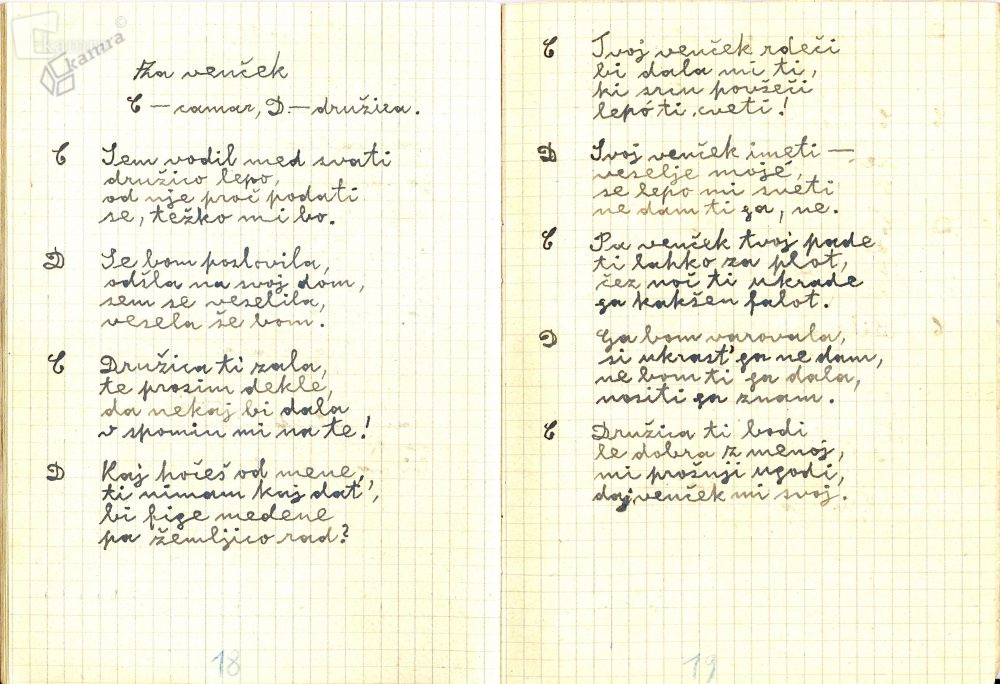 kamra
Za venček
C – camar, D. – družica.
C Sem vodil med svati
družico lepo,
od nje proč podati
se, težko mi bo.
D Se bom poslovila,
odšla na svoj dom,
sem se veselila,
vesela še bom.
C Družica ti zala,
te prosim dekle,
da nekaj bi dala
v spomin mi na te!
D Kaj hočeš od mene,
ti nimam kaj dat',
bi fige medene
pa žemljico rad?
18
C Tvoj venček rdeči
bi dala mi ti,
ki srcu povšeči
lepó ti cveti!
D Svoj venček imeti –
veselje moje,
se lepo mi sveti
ne dam ti ga, ne.
C Pa venček tvoj pade
ti lahko za plot,
čez noč ti ukrade
ga kakšen falot.
D Ga bom varovala,
si ukrast' ga ne dam,
ne bom ti ga dala,
nositi ga znam.
C Družica ti bodi
le dobra z menoj,
mi prošnji ugodi,
daj, venček mi svoj.
19